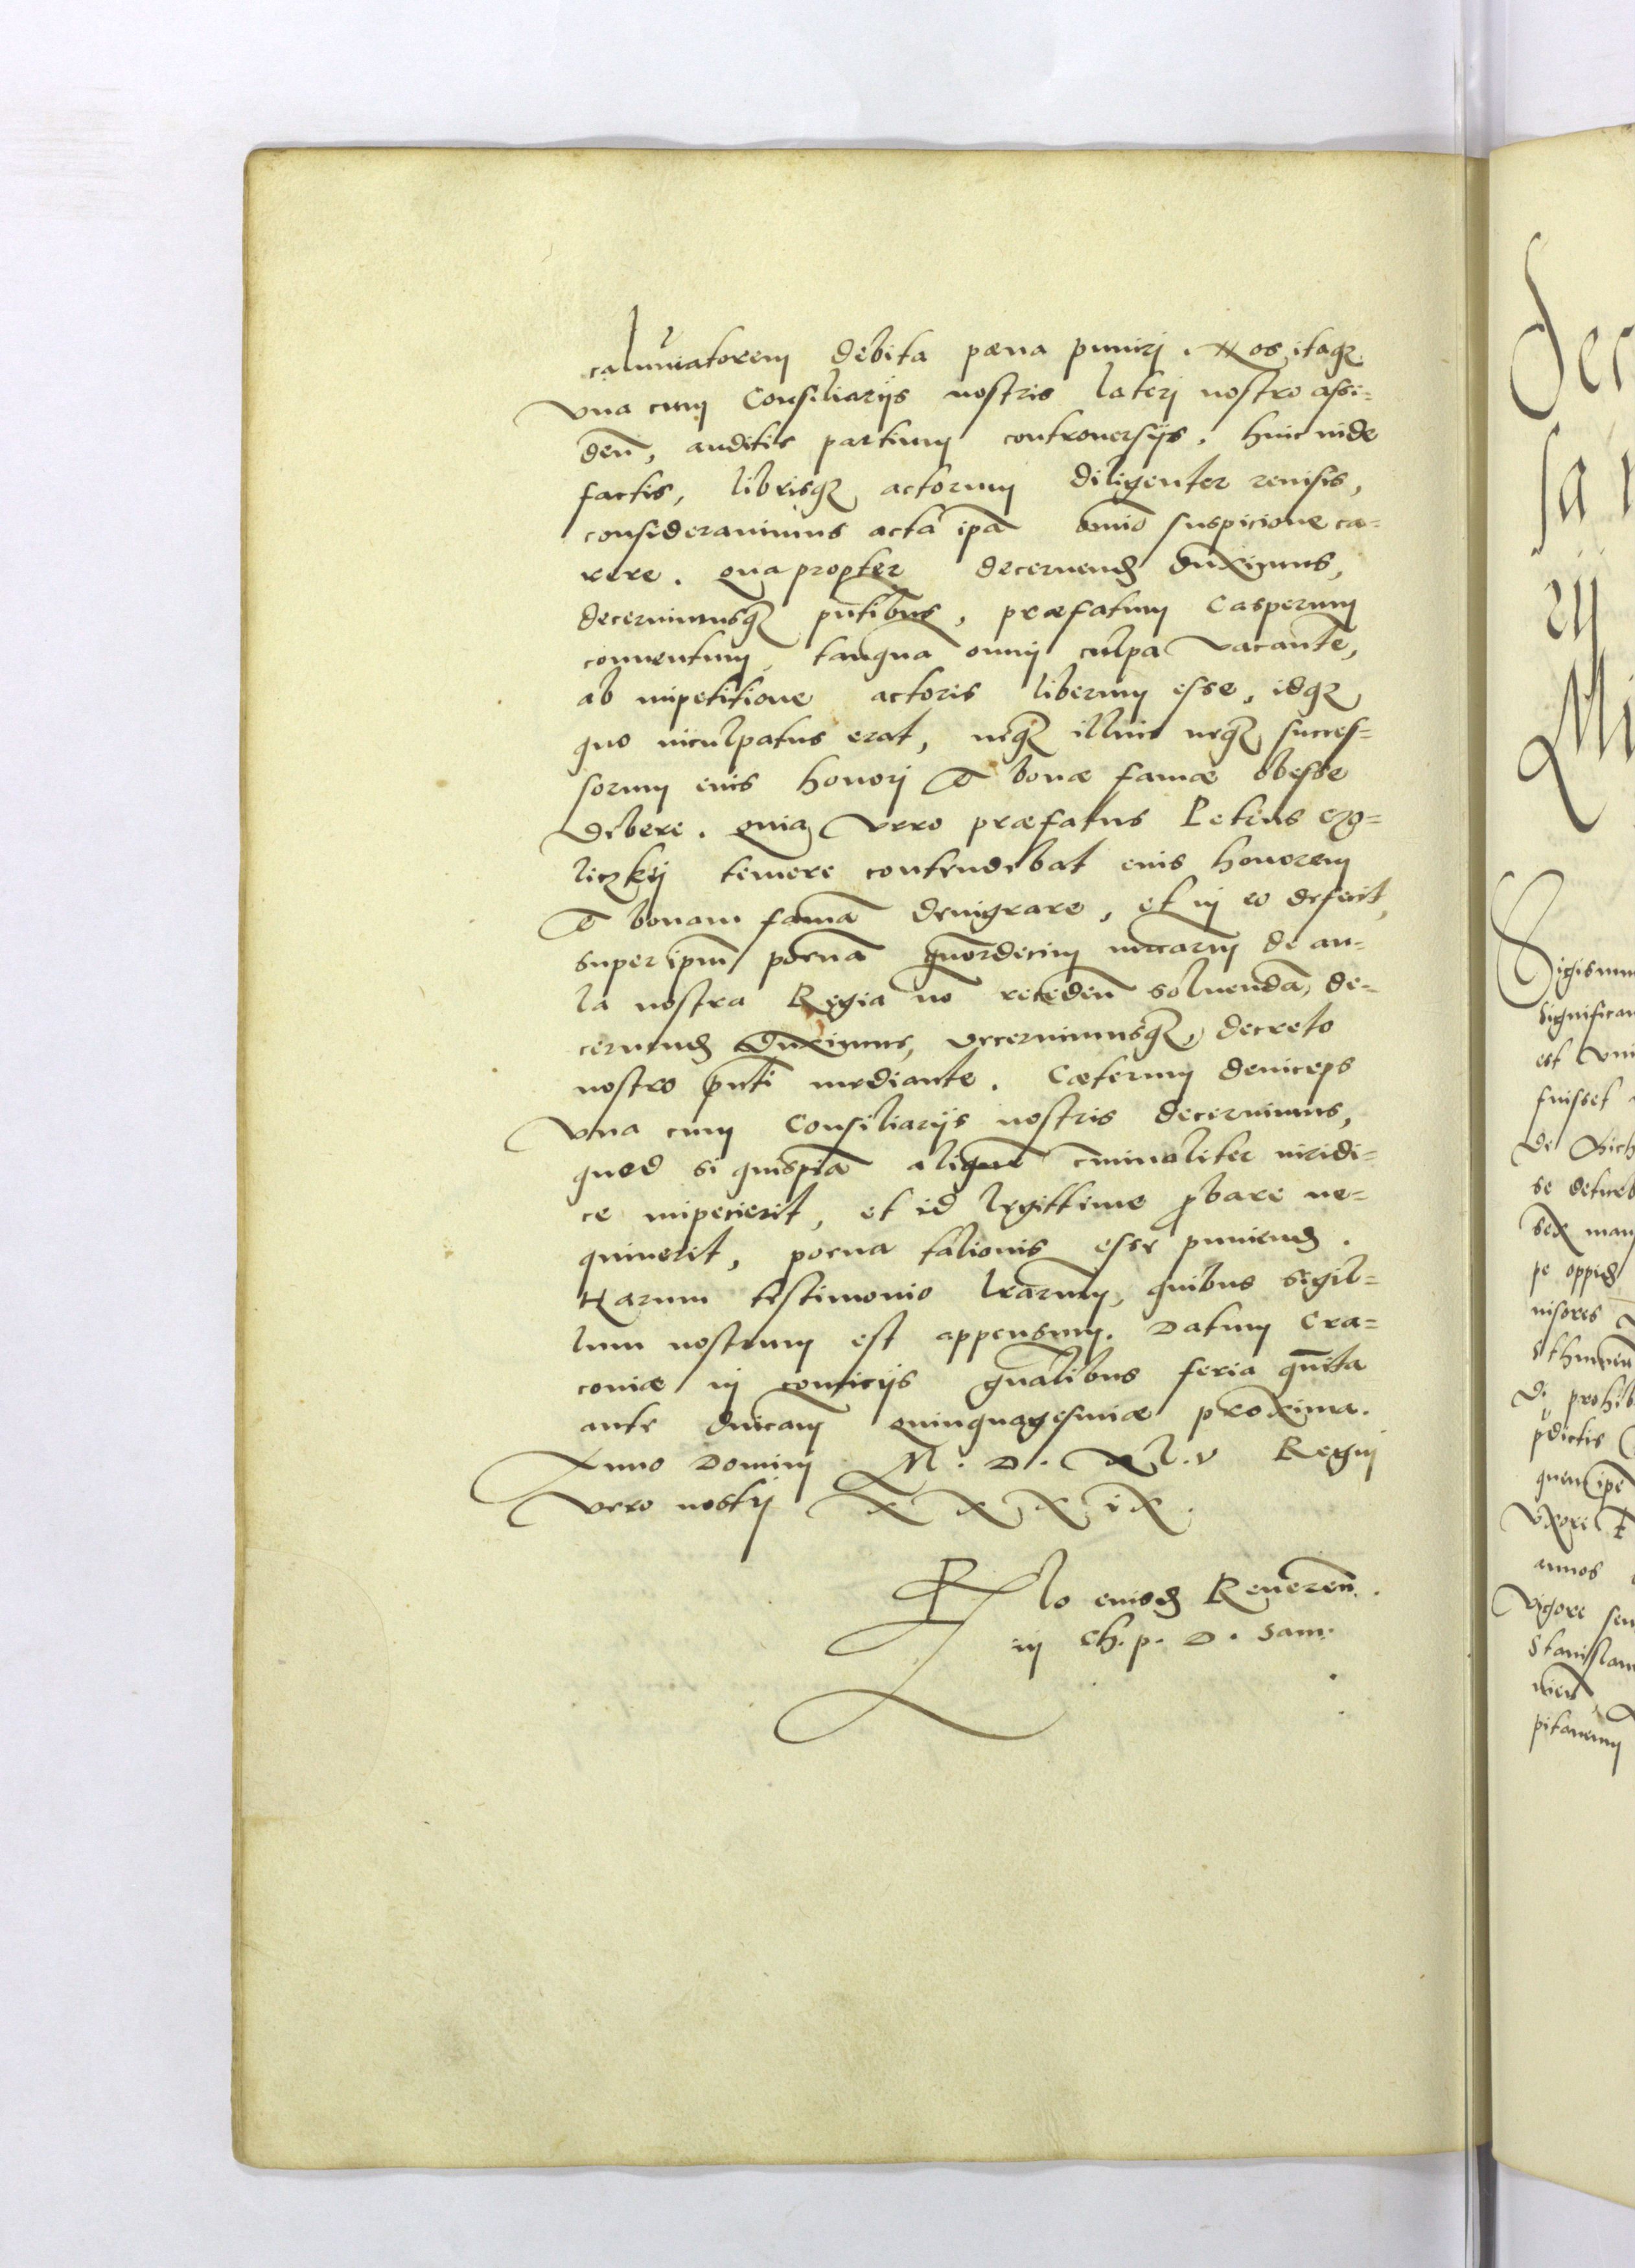 calumniatorem debita pœna punirj. Nos itaqȝ
vna cum Consiliarijs nostris laterj nostro assi=
den̄, auditis partium controuersijs, hinc inde
factis, librisqȝ actorum diligenter reuisis,
considerauimus acta ip̄a om̄io suspicione ca=
rere. Quapropter decernend duximus,
decernimusqȝ pn̄tibus, præfatum Casperum
conuentum, tanquā omnj culpa vacantē,
ab impetitione actoris liberum esse, idqȝ
quo inculpatus erat, neqȝ illius neqȝ succes=
sorum eius honorj & bonæ famæ obesse
debere. Quia vero præfatus Petrus Czg=
liczkij temere contendebat eius honorem
& bonam famā denigrare, et in eo defecit,
super ip̄m pœnā quordecim mcarum de au=
la nostra Regia nō receden̄ soluendā, de=
cernend duximus, decernimusqȝ, decreto
nostro pn̄ti mediante. Cæterum deinceps
vna cum Consiliarijs nostris decernimus,
quod si quispiā aliquē cminaliter iuridi=
ce impecierit, et id legittime pbare ne=
quiuerit, poena talionis esse puniend.
Harum testimonio lrarum, quibus sigil=
lum nostrum est appensum. Datum Cra=
couiæ in comicijs gn̄alibus feria quīta
ante dnicam quinquagesimæ proxima.
Anno Dominj M. D. XL.V Regnj
vero nostrj XXXIX.
Rlo eiusd Reueren̄.
in Ch. p. D. Sam.
Dec
sa
rij
Mi
Sigismun
significam
est
fuisset
de
se
sex
pe oppid
uisores
D. prohib
pdictis
quem ipē
vxore
annos
vigore seu
Stanislau
pitaneum